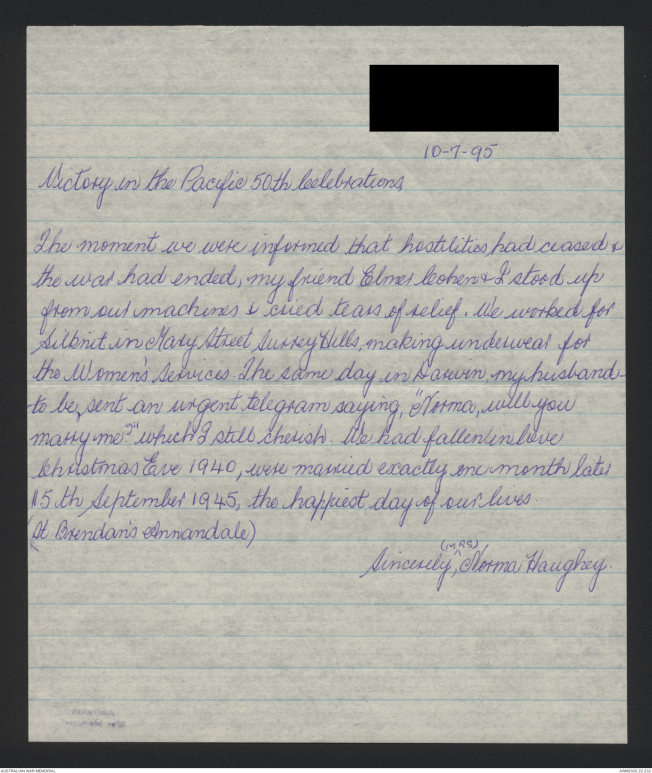 10-7-95
Victory in the Pacific 50th Celebrations,
The moment we were informed that hostilities had ceased &
the war had ended, my friend Elmer Cohen & I stood up
from our machines & cried tears of relief. We worked for
Silknit in Mary Street Surrey Hills, making underwear for
the Women's Services. The same day in Darwin, my husband-
to be, sent an urgent telegram saying, "Norma, will you
marry me?" which I still cherish. We had fallen in love
Christmas Eve 1940, were married exactly one month later
15th September 1945, the happiest day of our lives.
(St. Brendan's Annandale)
Sincerely, (MRS) Norma Haughey.
AUSTRALIAN WAR MEMORIAL